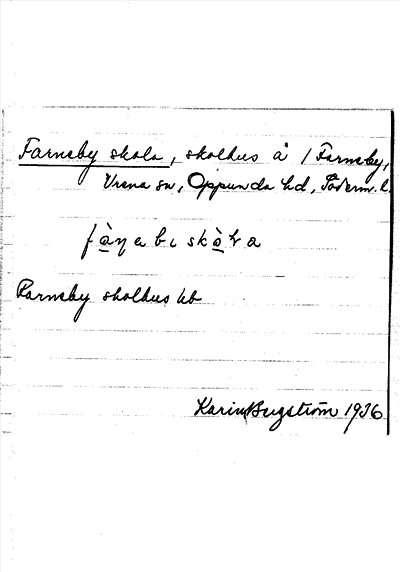 Farneby skola, skolhus å 1 Farneby,
Vrena sn, Oppunda hd, Söderm. l.
fà̱ɳebɩ skò̱ɽa
Farneby skolhus kb
Karin Bergström 1936